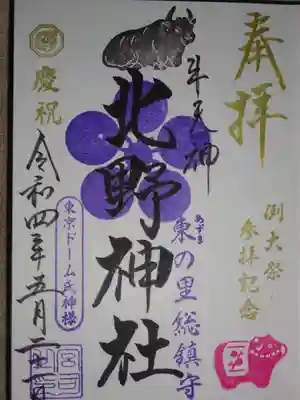 奉拝
例大祭
参拝記念
牛天神
東の里総鎮守
あずま
北野神社
東京ドーム氏神様
慶祝
令和四年五月二十一日